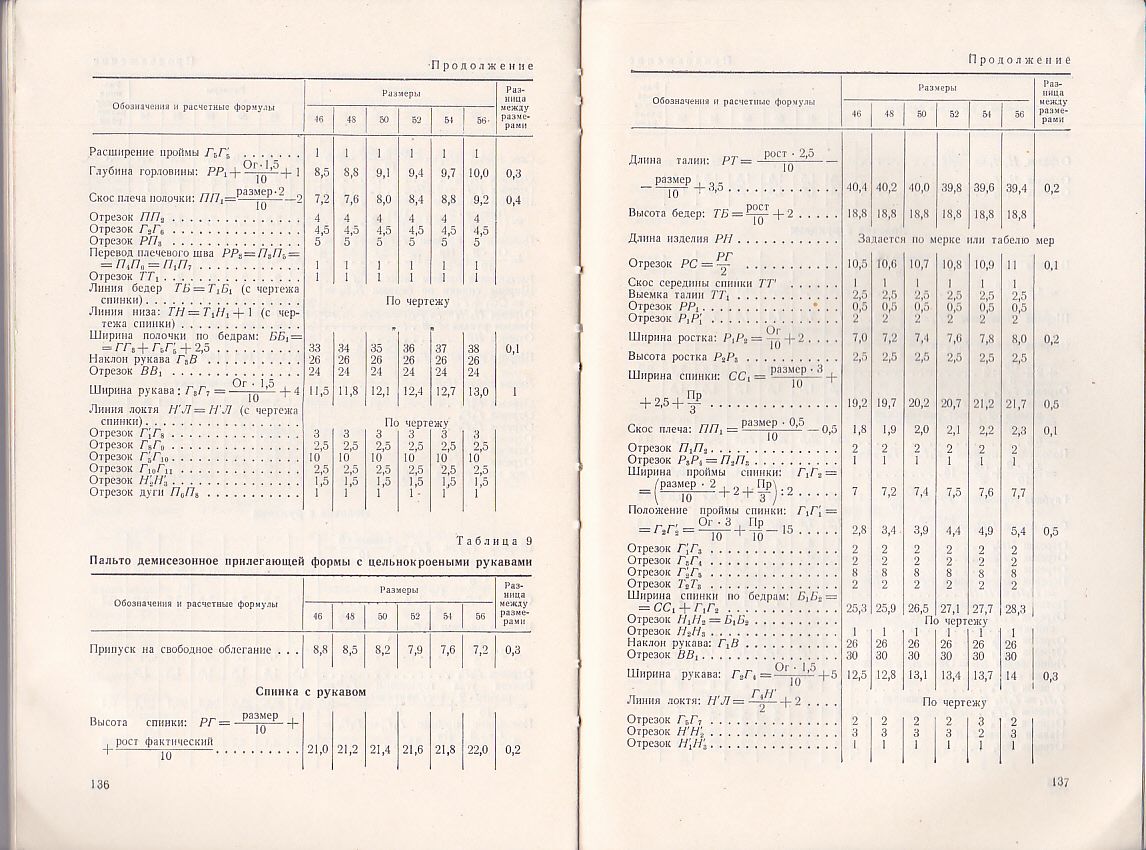 Продолжение
Обозначения и расчетные формулы
Размеры
Разница между размерами
46 48 50 52 54 56
Расширение проймы Г₅Г′₅ . . . . . . . 1 1 1 1 1 1
Глубина горловины: РР₁ + Ог·1,5/10 + 1 8,5 8,8 9,1 9,4 9,7 10,0 0,3
Скос плеча полочки: ПП₁ = размер·2/10 — 2 7,2 7,6 8,0 8,4 8,8 9,2 0,4
Отрезок ПП₂ . . . . . . . . . . . . 4 4 4 4 4 4
Отрезок Г₂Г₆ . . . . . . . . . . . . 4,5 4,5 4,5 4,5 4,5 4,5
Отрезок РП₃ . . . . . . . . . . . . 5 5 5 5 5 5
Перевод плечевого шва РР₃ = П₃П₅ =
= П₄П₆ = П₁П₇ . . . . . . . . . . . 1 1 1 1 1 1
Отрезок ТТ₁ . . . . . . . . . . . . 1 1 1 1 1 1
Линия бедер ТБ = Т₁Б₁ (с чертежа
спинки) . . . . . . . . . . . . . . По чертежу
Линия низа: ТН = Т₁Н₁ + 1 (с чер-
тежа спинки) . . . . . . . . . . . . „ „
Ширина полочки по бедрам: ББ₁ =
= ГГ₃ + Г₅Г′₅ + 2,5 . . . . . . . . . 33 34 35 36 37 38 0,1
Наклон рукава Г₈В . . . . . . . . . . 26 26 26 26 26 26
Отрезок ВВ₁ . . . . . . . . . . . . 24 24 24 24 24 24
Ширина рукава: Г₈Г₇ = Ог · 1,5/10 + 4 11,5 11,8 12,1 12,4 12,7 13,0 1
Линия локтя Н′Л = Н′Л (с чертежа
спинки) . . . . . . . . . . . . . . По чертежу
Отрезок Г′₁Г₈ . . . . . . . . . . . . 3 3 3 3 3 3
Отрезок Г₈Г₉ . . . . . . . . . . . . 2,5 2,5 2,5 2,5 2,5 2,5
Отрезок Г′₅Г₁₀ . . . . . . . . . . . 10 10 10 10 10 10
Отрезок Г₁₀Г₁₁ . . . . . . . . . . . 2,5 2,5 2,5 2,5 2,5 2,5
Отрезок Н′₂Н′₃ . . . . . . . . . . . 1,5 1,5 1,5 1,5 1,5 1,5
Отрезок дуги П₆П₈ . . . . . . . . . . 1 1 1 1 1 1
Таблица 9
Пальто демисезонное прилегающей формы с цельнокроеными рукавами
Обозначения и расчетные формулы
Размеры
Разница между размерами
46 48 50 52 54 56
Припуск на свободное облегание . . . 8,8 8,5 8,2 7,9 7,6 7,2 0,3
Спинка с рукавом
Высота спинки: РГ = размер/10 +
+ рост фактический/10 . . . . . . . . . . 21,0 21,2 21,4 21,6 21,8 22,0 0,2
136
Продолжение
Обозначения и расчетные формулы
Размеры
Разница между размерами
46 48 50 52 54 56
Длина талии: РТ = рост · 2,5/10 —
— размер/10 + 3,5 . . . . . . . . . . . . 40,4 40,2 40,0 39,8 39,6 39,4 0,2
Высота бедер: ТБ = рост/10 + 2 . . . . . 18,8 18,8 18,8 18,8 18,8 18,8
Длина изделия РН . . . . . . . . . . . Задается по мерке или табелю мер
Отрезок РС = РГ/2 . . . . . . . . . . 10,5 10,6 10,7 10,8 10,9 11 0,1
Скос середины спинки ТТ′ . . . . . . 1 1 1 1 1 1
Выемка талии ТТ₁ . . . . . . . . . . . 2,5 2,5 2,5 2,5 2,5 2,5
Отрезок РР₁ . . . . . . . . . . . . . 0,5 0,5 0,5 0,5 0,5 0,5
Отрезок Р₁Р′₁ . . . . . . . . . . . . 2 2 2 2 2 2
Ширина ростка: Р₁Р₂ = Ог/10 + 2 . . . . 7,0 7,2 7,4 7,6 7,8 8,0 0,2
Высота ростка Р₂Р₃ . . . . . . . . . . 2,5 2,5 2,5 2,5 2,5 2,5
Ширина спинки: СС₁ = размер · 3/10 +
+ 2,5 + Пр/3 . . . . . . . . . . . . . 19,2 19,7 20,2 20,7 21,2 21,7 0,5
Скос плеча: ПП₁ = размер · 0,5/10 — 0,5 1,8 1,9 2,0 2,1 2,2 2,3 0,1
Отрезок П₁П₂ . . . . . . . . . . . . 2 2 2 2 2 2
Отрезок Р₃Р₄ = П₂П₃ . . . . . . . . . 1 1 1 1 1 1
Ширина проймы спинки: Г₁Г₂ =
= (размер · 2/10 + 2 + Пр/3) : 2 . . . . . 7 7,2 7,4 7,5 7,6 7,7
Положение проймы спинки: Г₁Г′₁ =
= Г₂Г′₂ = Ог · 3/10 + Пр/10 — 15 . . . . . 2,8 3,4 3,9 4,4 4,9 5,4 0,5
Отрезок Г′₁Г₃ . . . . . . . . . . . . 2 2 2 2 2 2
Отрезок Г₃Г₄ . . . . . . . . . . . . 2 2 2 2 2 2
Отрезок Г′₂Г₅ . . . . . . . . . . . . 8 8 8 8 8 8
Отрезок Т₂Т₃ . . . . . . . . . . . . 2 2 2 2 2 2
Ширина спинки по бедрам: Б₁Б₂ =
= СС₁ + Г₁Г₂ . . . . . . . . . . . . 25,3 25,9 26,5 27,1 27,7 28,3
Отрезок Н₁Н₂ = Б₁Б₂ . . . . . . . . . По чертежу
Отрезок Н₂Н₃ . . . . . . . . . . . . 1 1 1 1 1 1
Наклон рукава: Г₁В . . . . . . . . . . 26 26 26 26 26 26
Отрезок ВВ₁ . . . . . . . . . . . . . 30 30 30 30 30 30
Ширина рукава: Г₂Г₄ = Ог · 1,5/10 + 5 12,5 12,8 13,1 13,4 13,7 14 0,3
Линия локтя: Н′Л = Г₄Н′/2 + 2 . . . . По чертежу
Отрезок Г₅Г₇ . . . . . . . . . . . . 2 2 2 2 3 2
Отрезок Н′Н′₂ . . . . . . . . . . . . 3 3 3 3 2 3
Отрезок Н′₁Н′₃ . . . . . . . . . . . . 1 1 1 1 1 1
137